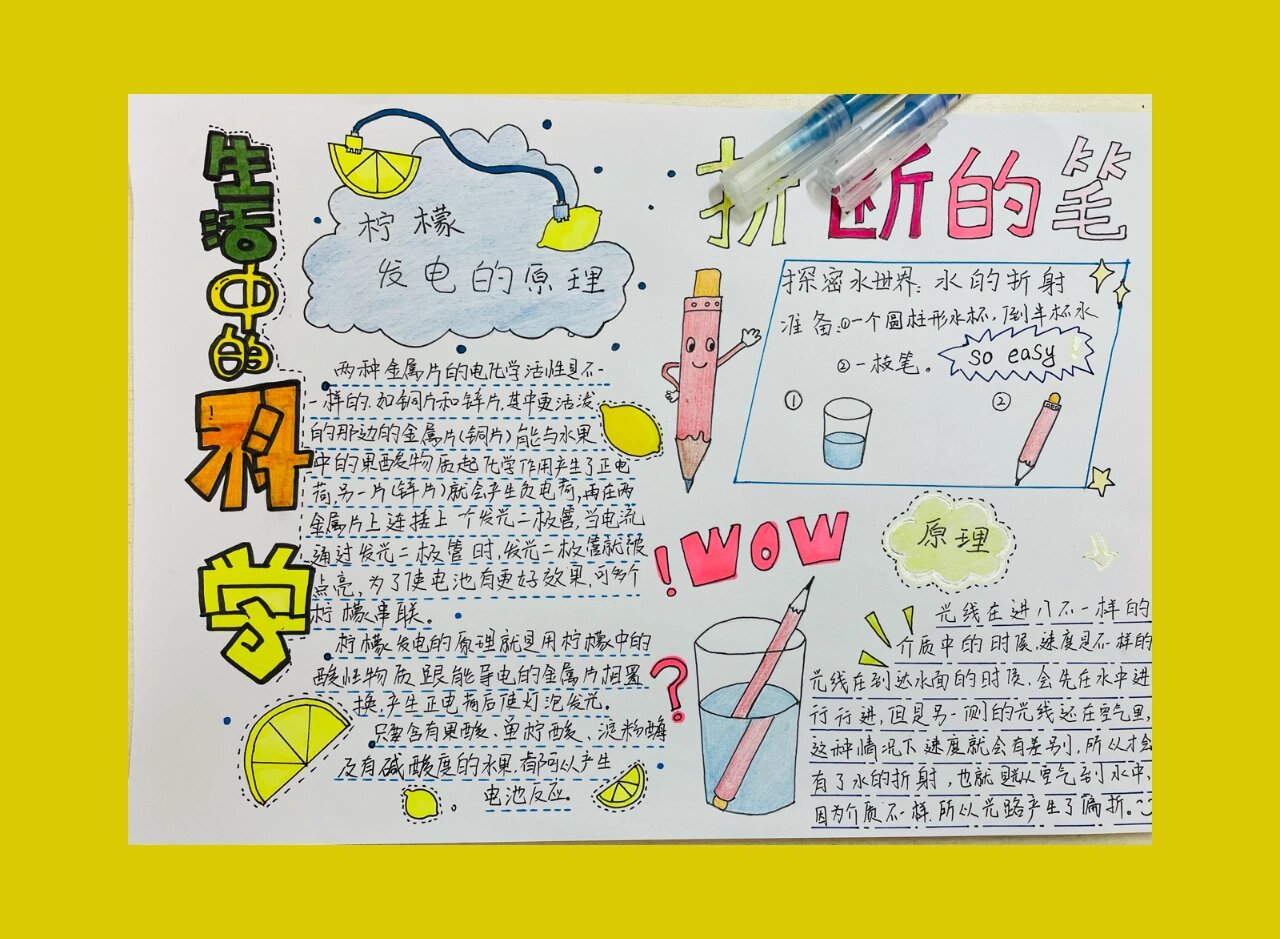 生活中的科学
柠檬
发电的原理
两种金属片的电化学活性是不
一样的.如铜片和锌片,其中更活泼
的那边的金属片(铜片)能与水果
中的果酸物质起化学作用产生了正电
荷,另一片(锌片)就会产生负电荷,再在两
金属片上连接上一个发光二极管,当电流
通过发光二极管时,发光二极管就被
点亮,为了使电池有更好效果.可多个
柠檬串联。
柠檬发电的原理就是用柠檬中的
酸性物质跟能导电的金属片相置
换,产生正电荷后使灯泡发光。
只要含有果酸、单柠酸、淀粉酶
及有碱酸度的水果,都可以产生
电池反应。
折断的笔
探密水世界:水的折射
准备:①一个圆柱形水杯,倒半杯水
②一枝笔。
so easy
① ②
!WOW
?
原理
光线在进入不一样的
介质中的时候,速度是不一样的
光线在到达水面的时候,会先在水中进
行行进,但是另一侧的光线还在空气里,
这种情况下速度就会有差别,所以才会
有了水的折射,也就是说从空气到水中,
因为介质不一样.所以光路产生了偏折。